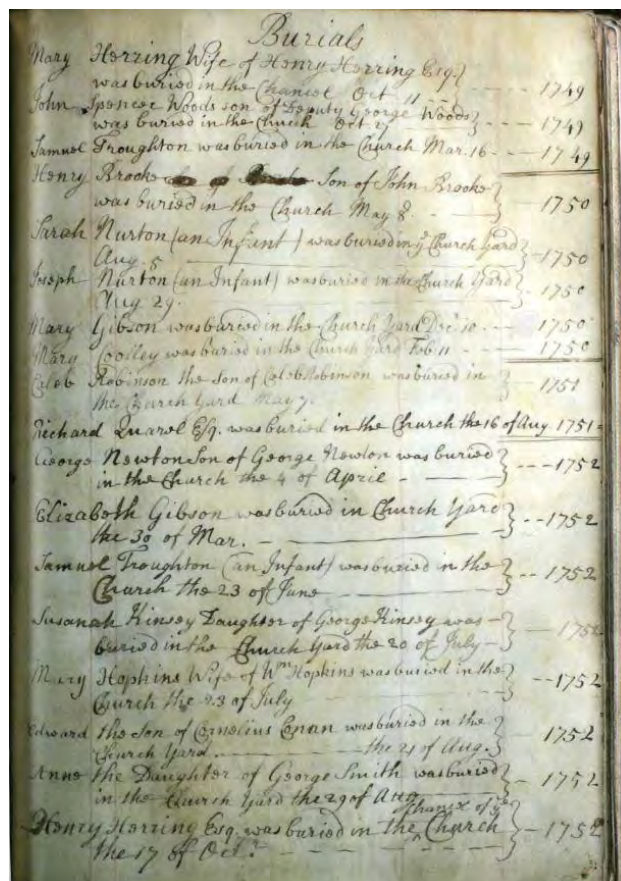 Burials
Mary Herring Wife of Henry Herring Esq.
was buried in the Chancel Oct 11 1749
John Spencer Woods son of Deputy George Woods
was buried in the Church Oct 27 1749
Samuel Troughton was buried in the Church Mar. 16 1749
Henry Brooke Son of John Brooke
was buried in the Church May 8. 1750
Sarah Nurton (an Infant) was buried in ye Church Yard
Aug. 5 1750
Joseph Nurton (an Infant) was buried in the Church Yard
Aug 29. 1750
Mary Gibson was buried in the Church Yard Dec. 10 1750
Mary Coolley was buried in the Church Yard Feb. 11 1750
Caleb Robinson the Son of Caleb Robinson was buried in
the Church Yard May 7. 1751
Richard Esq. was buried in the Church the 16 of Aug. 1751
George Newton Son of George Newton was buried
in the Church the 4 of April 1752
Elizabeth Gibson was buried in Church Yard
the 30 of Mar. 1752
Samuel Troughton (an Infant) was buried in the
Church the 23 of June 1752
Susanah Kinsey Daughter of George Kinsey was
buried in the Church Yard the 20 of July 1752
Mary Hopkins Wife of Wm Hopkins was buried in the
Church the 23 of July 1752
Edward the Son of Cornelius was buried in the
Church Yard the 21 of Aug. 1752
Anne the Daughter of George Smith was buried
in the Church Yard the 29 of Aug 1752
Chancel of ye
Henry Herring Esq. was buried in the Church
the 17 of Octr. 1752